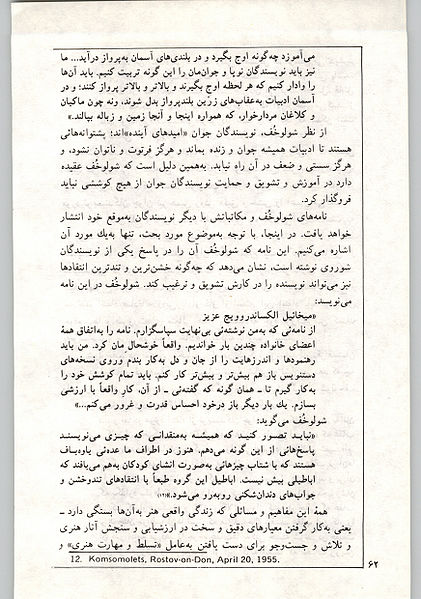 می‌آموزد چه‌گونه اوج بگیرد و در بلندی‌های آسمان به‌پرواز درآید... ما
نیز باید نویسندگان نوپا و جوان‌مان را این گونه تربیت کنیم. باید آن‌ها
را وادار کنیم که هر لحظه اوج بگیرند و بالاتر و بالاتر پرواز کنند؛ و در
آسمان ادبیات به‌عقاب‌های زرین بلندپرواز بدل شوند، ونه چون ماکیان
و کلاغان مردارخوار، که همواره اینجا و آنجا زمین و زباله بپالند.»
از نظر شولوخُف، نویسندگان جوان «امیدهای آینده»اند؛ پشتوانه‌هائی
هستند تا ادبیات همیشه جوان و زنده بماند و هرگز فرتوت و ناتوان نشود، و
هرگز سستی و ضعف در آن راه نیابد. به‌همین دلیل است که شولوخُف عقیده
دارد در آموزش و تشویق و حمایت نویسندگان جوان از هیچ کوششی نباید
فروگذار کرد.
نامه‌های شولوخُف و مکاتباتش با دیگر نویسندگان به‌موقع خود انتشار
خواهد یافت. در اینجا، با توجه به‌موضوع مورد بحث، تنها به‌یك مورد آن
اشاره می‌کنیم. این نامه که شولوخُف آن را در پاسخ یکی از نویسندگان
شوروی نوشته است، نشان می‌دهد که چه‌گونه خشن‌ترین و تندترین انتقادها
نیز می‌تواند نویسنده را در کارش تشویق و ترغیب کند. شولوخُف در این نامه
می‌نویسد:
«میخائیل الکساندروویچ عزیز
از نامه‌ئی که به‌من نوشته‌ئی بی‌نهایت سپاسگزارم. نامه را به‌اتفاق همهٔ
اعضای خانواده چندین بار خواندیم. واقعاً خوشحال مان کرد. من باید
رهنمودها و اندرزهایت را از جان و دل به‌کار بندم وروی نسخه‌های
دستنویس باز هم بیش‌تر و بیش‌تر کار کنم. باید تمام کوشش خود را
به‌کار گیرم تا ـ همان گونه که گفته‌ئی ـ از آن، کار واقعاً با ارزشی
بسازم. یك بار دیگر باز درخود احساس قدرت و غرور می‌کنم...»
شولوخُف می‌گوید:
«نباید تصور کنید که همیشه به‌منتقدانی که چیزی می‌نویسند
پاسخ‌هائی از این گونه می‌دهم. هنوز در اطراف ما عده‌ئی یاوه‌باف
هستند که با شتاب چیزهائی به‌صورت انشای کودکان به‌هم می‌بافند که
اباطیلی بیش نیست. اباطیل این گروه طبعاً با انتقادهای تندوخشن و
جواب‌های دندان‌شکنی روبه‌رو می‌شود.»(۱۲)
همهٔ این مفاهیم و مسائلی که زندگی واقعی هنر به‌آن‌ها بستگی دارد ـ
یعنی به‌کار گرفتن معیارهای دقیق و سخت در ارزشیابی و سنجش آثار هنری
و تلاش و جست‌وجو برای دست یافتن به‌عامل «تسلط و مهارت هنری» و
12. Komsomolets, Rostov-on-Don, April 20, 1955.
۶۲